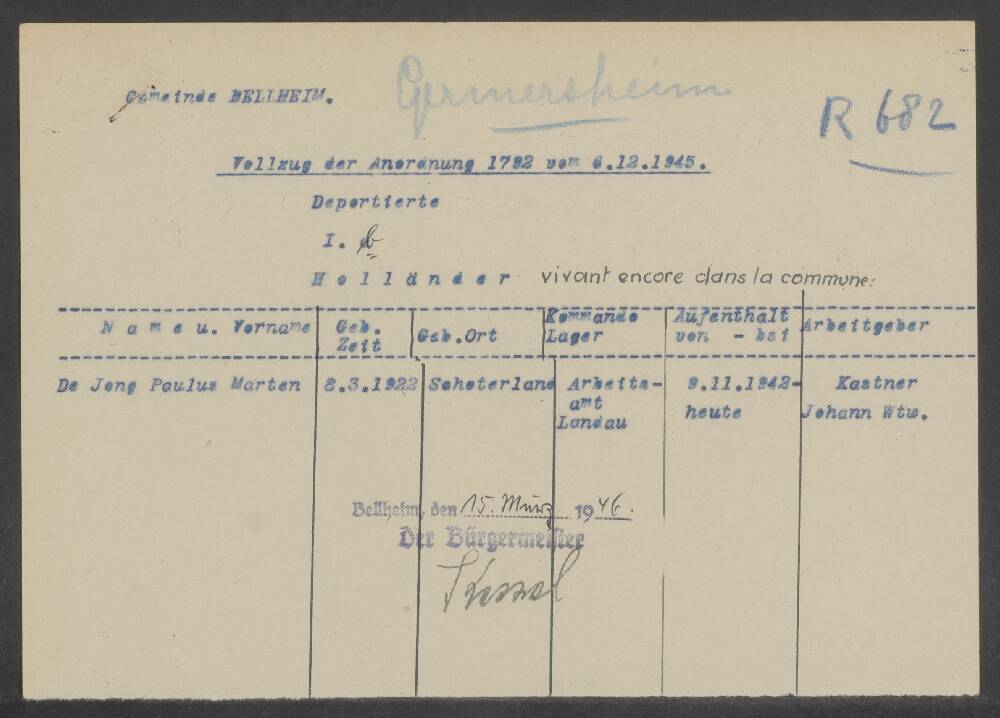 Gemeinde BELLHEIM.
Germersheim
R 682
Vollzug der Anordnung 1792 vom 6.12.1945.
Deportierte
I. b
Holländer vivant encore dans la commune:
Name u. Vorname Geb. Zeit Geb.Ort Kommando Lager Aufenthalt von - bsi Arbeitgeber
De Jong Paulus Marten 8.3.1922 Schoterland Arbeits- 9.11.1942- Kastner
amt heute Johann Wtw.
Landau
Bellheim, den 15. März 1946.
Der Bürgermeister